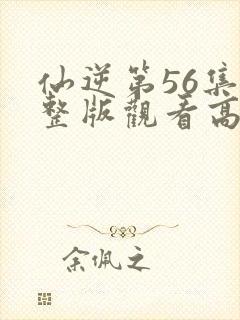 仙逆第56集
整版觀看高
余佩之